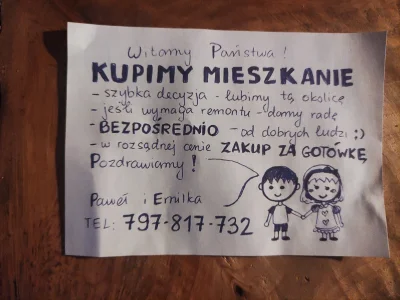 Witamy Państwa!
KUPIMY MIESZKANIE
- szybka decyzja - lubimy tą okolicę
- jeśli wymaga remontu - damy radę
- BEZPOŚREDNIO - od dobrych ludzi :)
- w rozsądnej cenie ZAKUP ZA GOTÓWKĘ
Pozdrawiamy!
Paweł i Emilka
TEL: 797-817-732